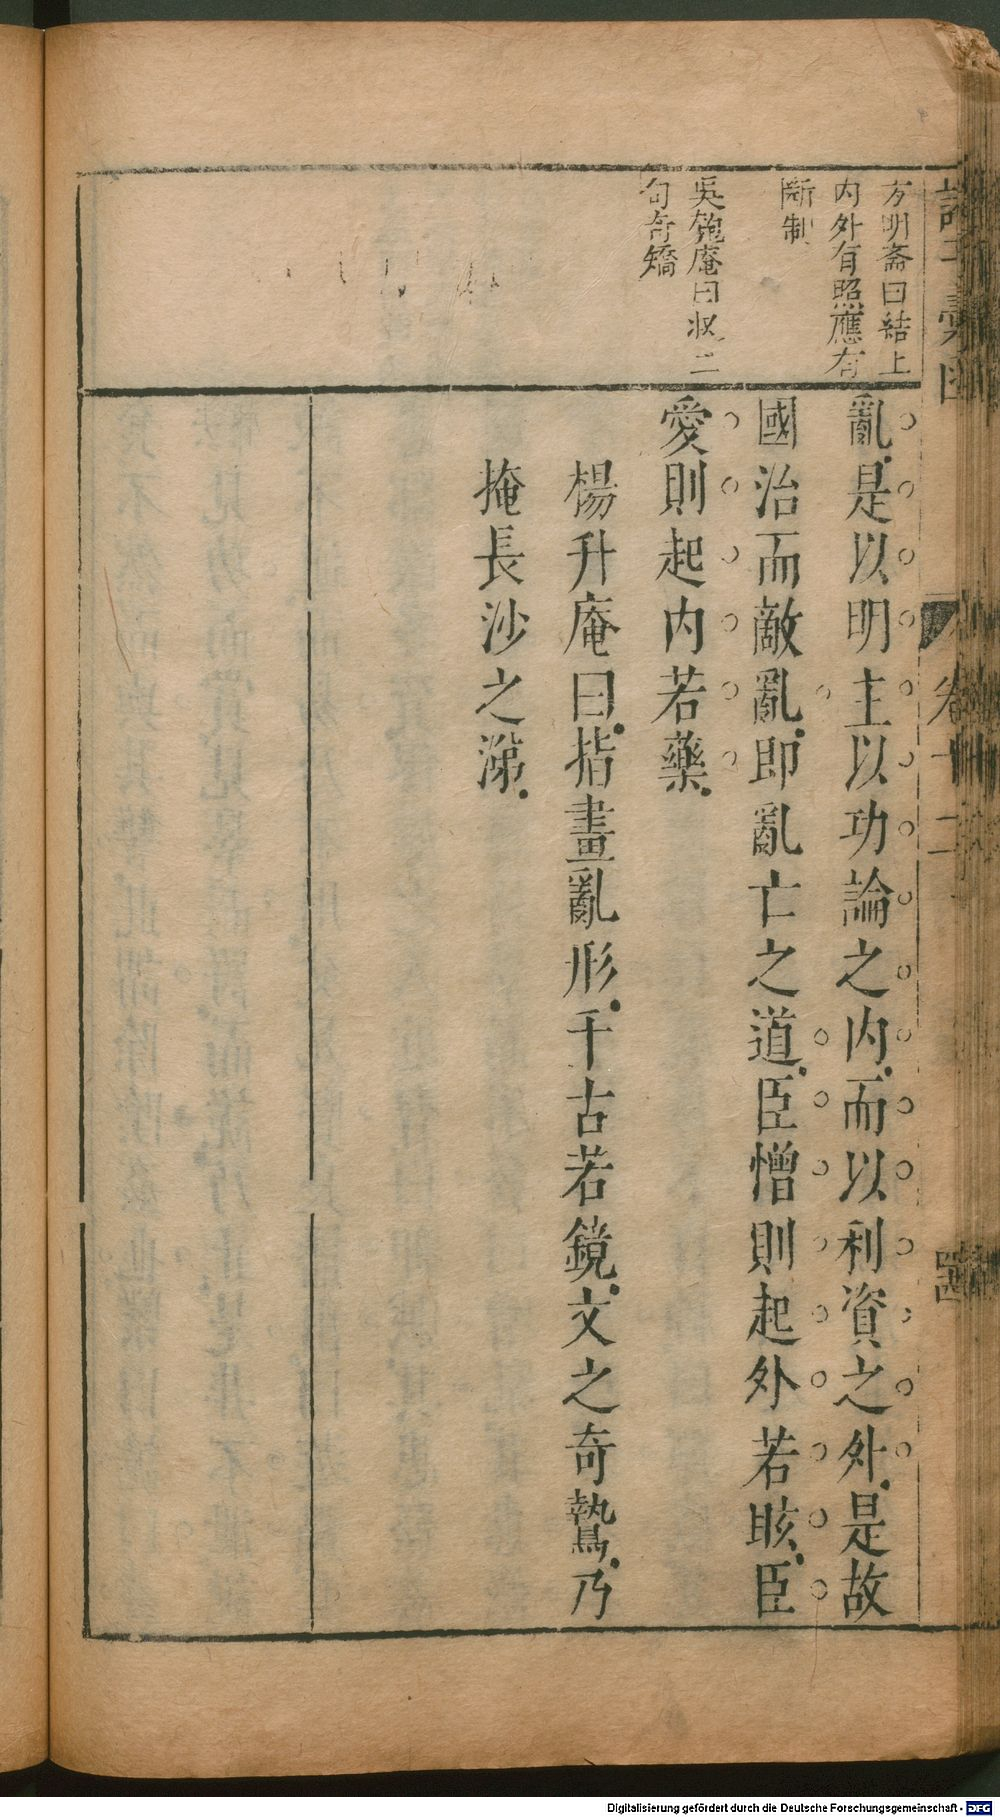 方明齋曰結上
内外有照應有
斷制
吳匏庵曰收二
句奇矯
亂是以明主以功論之内而以利資之外是故
國治而敵亂即亂亡之道臣憎則起外若眩臣
愛則起内若藥
楊升庵曰指畫亂形千古若鏡文之奇鷙乃
掩長沙之涕
諸子彙函
卷十二
Digitalisierung gefördert durch die Deutsche Forschungsgemeinschaft - DFG